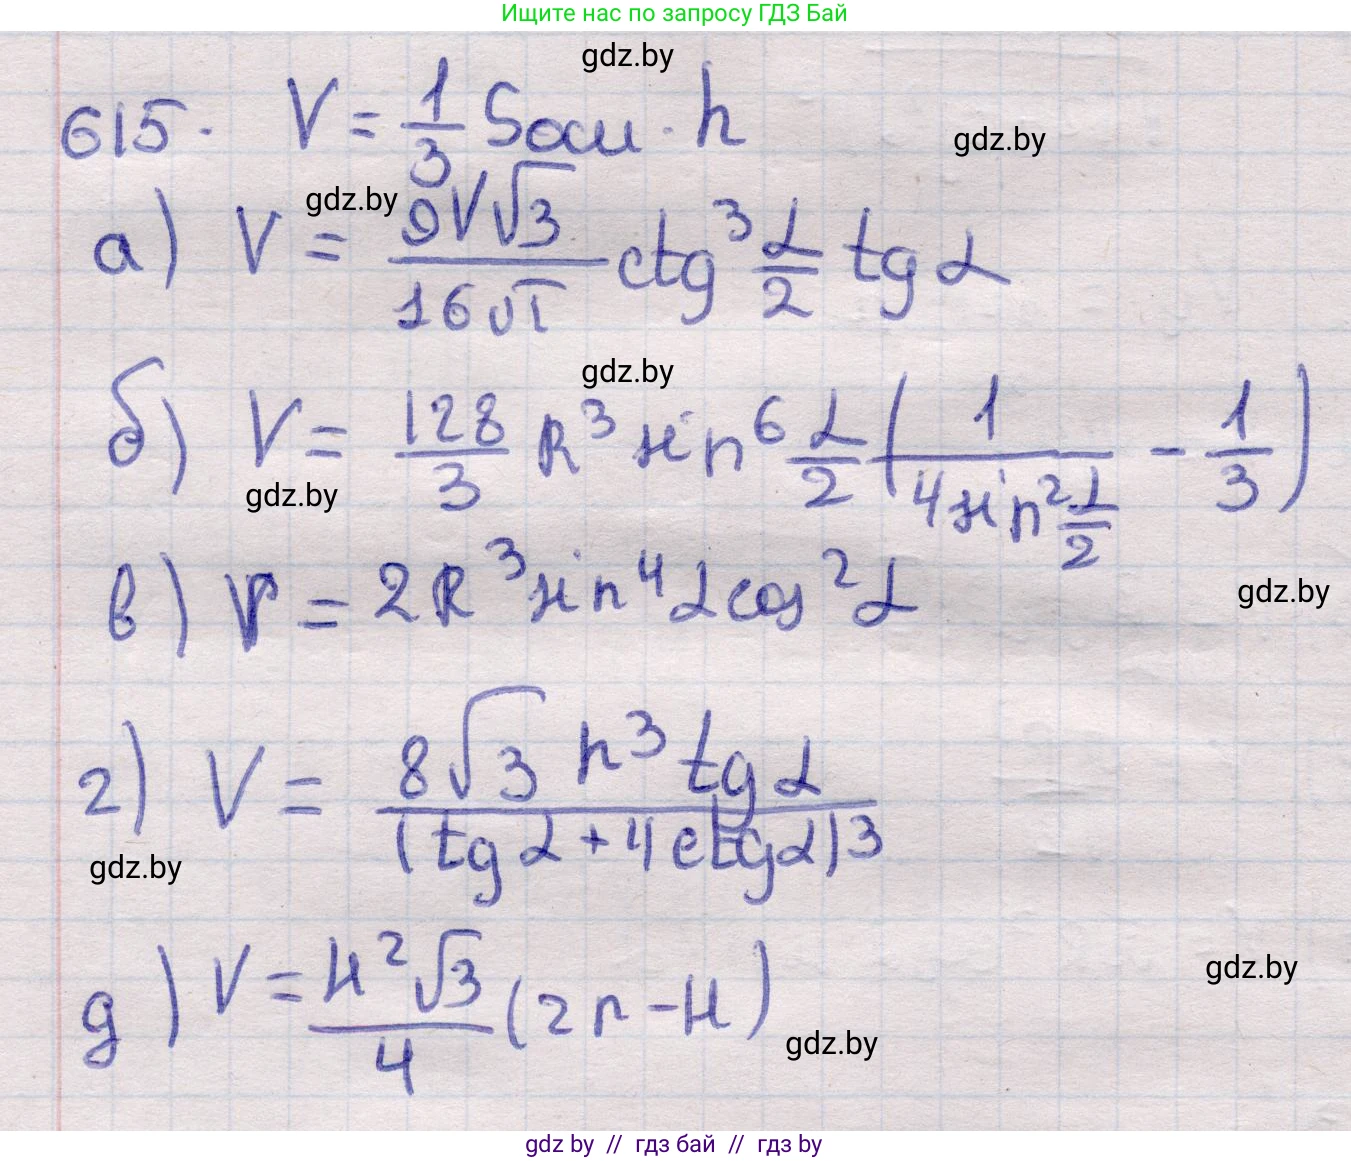 Ищите нас по запросу ГДЗ Бай
gdz.by
615. V = 1/3 Sосн · h
gdz.by
gdz.by
а) V = 9V√3/16√π ctg³ α/2 tg α
gdz.by
б) V = 128/3 R³ sin⁶ α/2 (1/(4 sin² α/2) - 1/3)
gdz.by
в) V = 2R³ sin⁴ α cos² α
gdz.by
г) V = 8√3 h³ tg α/(tg α + 4 ctg α)3
gdz.by
д) V = H²√3/4 (2r - H)
gdz.by
gdz.by
gdz by // гдз бай // гдз by